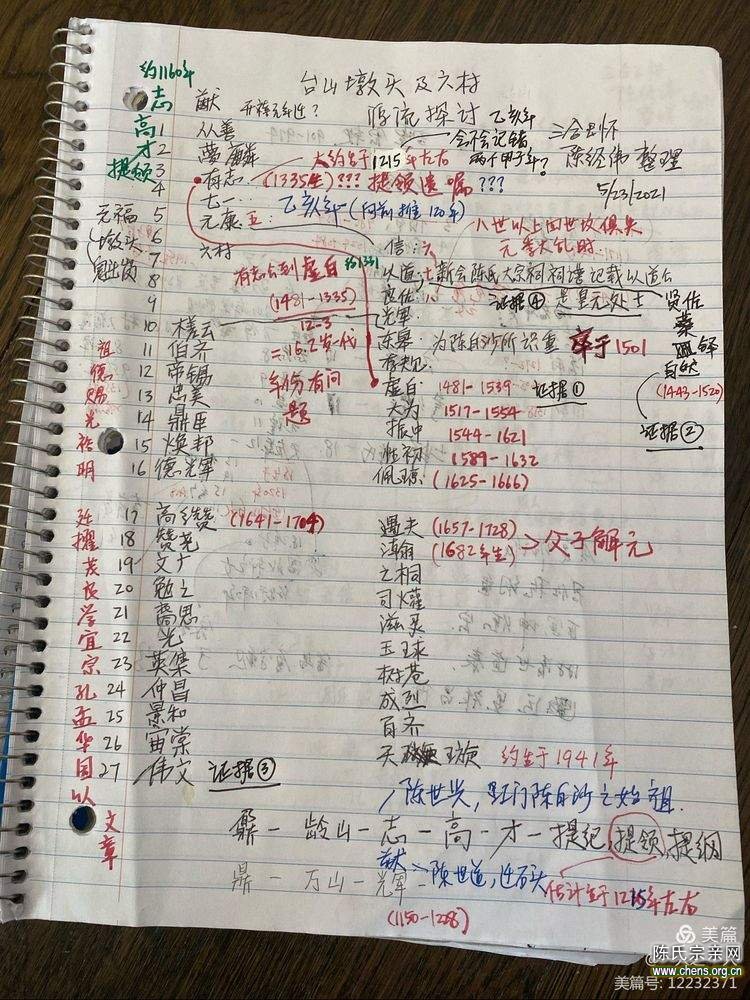 约1160年
台山墩头及六村
志 猷
源流探讨 乙亥年
高 1 从善
会不会记错
三合剔怀
才 2 梦麟
大约生于1215年左右
两个甲子年?
陈经伟 整理
提领 3
4 存志 (1335生)??? 提领遗嘱???
5/23/2021
七一
乙亥年(向前推120年)
元福 5 元康 五
八世以上因世玫俱失
元季大乱时
墩头 6 六村
信: 六
7
以道 七 新会陈氏大宗祠祠谱记载以道公
证据④ 是皇元处士
8 有志公到虚白 约1331
良佐 八
贤佐
9 (1481-1335)
光宰
10 槎云 12-3
陈皋: 为陈白沙所识重 卒于1501
铎
祖 11 伯齐 =16.2岁一代
自然
德 12 帝锡 年份有问题
(1443-1520)
虚白 1481-1539 证据①
赐 13 忠美
大为 1517-1554
光 14 鼎臣
振中 1544-1621
证据②
裕 15 焕邦
胜初 1589-1632
明 16 德光宰
佩琼 (1625-1666)
延 17 高缵 (1641-1704)
遇夫 (1657-1728)
擢 18 赞尧
(1682年生) >父子解元
茂 19 文广
之桐
良 20 勉之
司爟
学 21 裔思
滋灵
宜 22 光
玉球
宗 23 英集
树苍
孔 24 仲昌
成烈
孟 25 景和
百齐
华 26 宙棠
天 璇 约生于1941年
国 27 伟文 证据③
以
文
章
陈世兴,江门陈白沙之始祖.
鼐一龄山一志一高一才一提纪,提领,提纲
猷 >陈世道,迁石头
估计生于1215年左右
鼎一万山一光宰
(1150-1208)
美篇
陈氏宗亲网
www.chens.org.cn
美篇号: 12232371